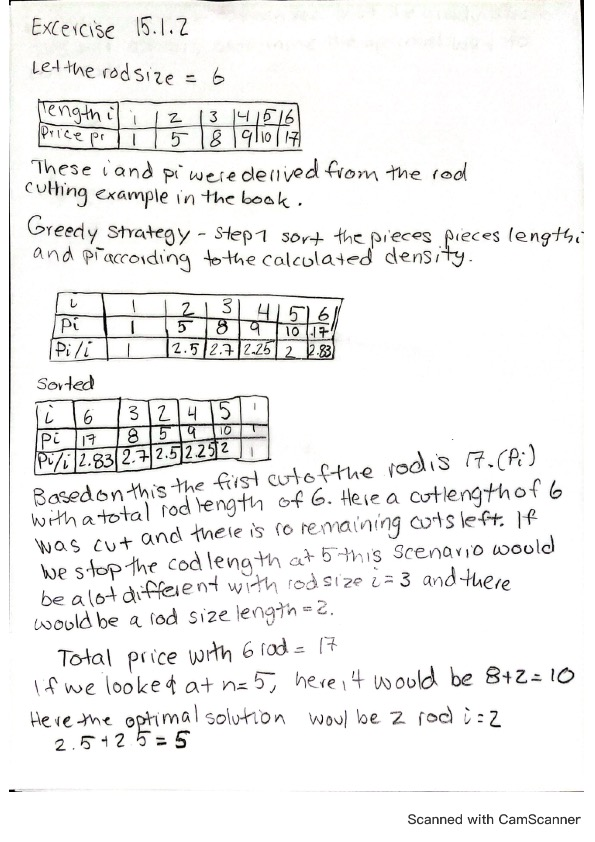 Excercise 15.1.2
Let the rod size = 6
length i 1 2 3 4 5 6
Price pi 1 5 8 9 10 17
These i and pi were derived from the rod
cutting example in the book.
Greedy strategy - Step 1 sort the pieces pieces length i
and pi according to the calculated density.
i 1 2 3 4 5 6
Pi 1 5 8 9 10 17
Pi/i 1 2.5 2.7 2.25 2 2.83
Sorted
i 6 3 2 4 5 1
Pi 17 8 5 9 10 1
Pi/i 2.83 2.7 2.5 2.25 2 1
Based on this the first cut of the rod is 17. (Pi)
with a total rod length of 6. Here a cut length of 6
was cut and there is no remaining cuts left. If
we stop the cod length at 5 this scenario would
be a lot different with rod size i = 3 and there
would be a rod size length = 2.
Total price with 6 rod = 17
If we looked at n = 5, here, it would be 8+2 = 10
Here the optimal solution woul be 2 rod i = 2
2.5 + 2.5 = 5
Scanned with CamScanner